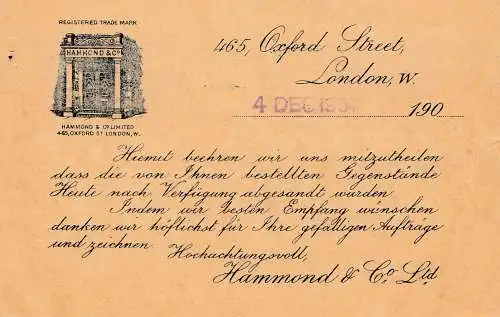 REGISTERED TRADE MARK
HAMMOND & Co
HAMMOND & Co LIMITED
465, OXFORD ST LONDON, W.
465, Oxford Street,
London, W.
4 DEC 190
190
Hiemit beehren wir uns mitzutheilen
dass die von Ihnen bestellten Gegenstände
Heute nach Verfügung abgesandt wurden.
Indem wir besten Empfang wünschen
danken wir höflichst für Ihre gefälligen Auftrage
und zeichnen Hochachtungsvoll,
Hammond & Co. Ltd.